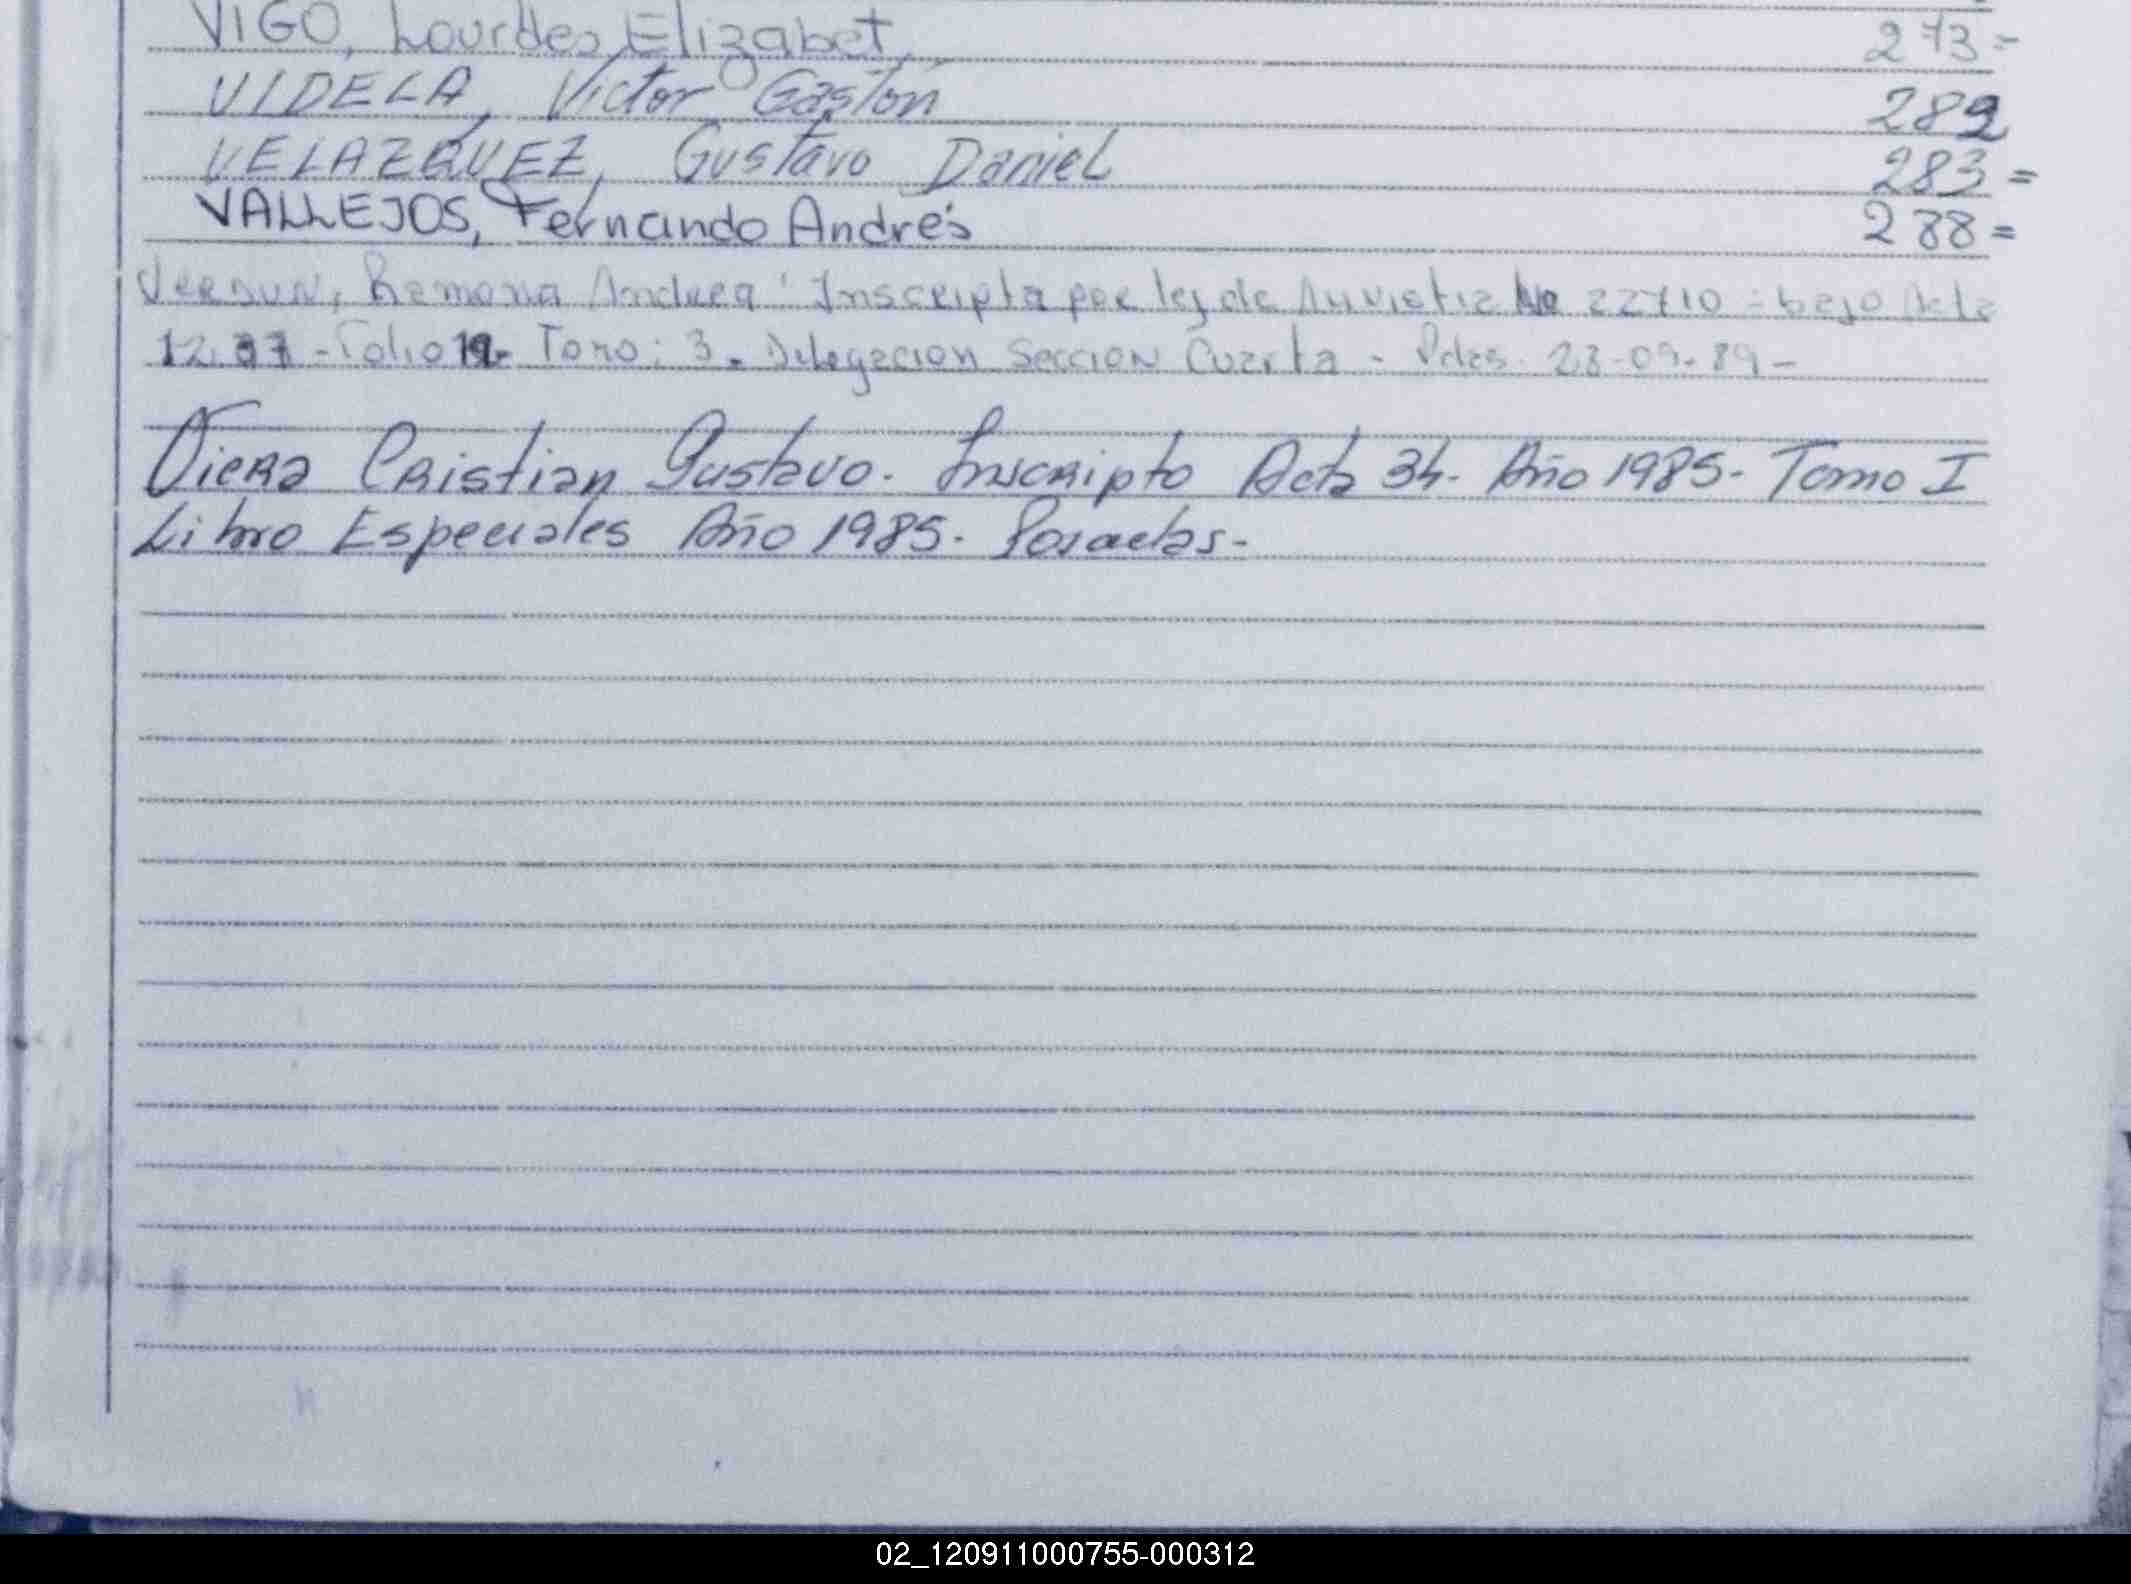 VIGO, Lourdes Elizabet, 273=
VIDELA, Víctor Gastón 282
VELAZQUEZ, Gustavo Daniel 283=
VALLEJOS, Fernando Andrés 288=
Ramona Andrea Inscripta por ley de No 22710 - bajo Acta
12 - Folio 12 - Tomo: 3. Delegacion Seccion Cuarta - Pdas. 28-09-89-
Viera Cristian Gustavo. Inscripto Acta 34. Año 1985- Tomo I
Libro Especiales Año 1985. Posadas-
02_120911000755-000312